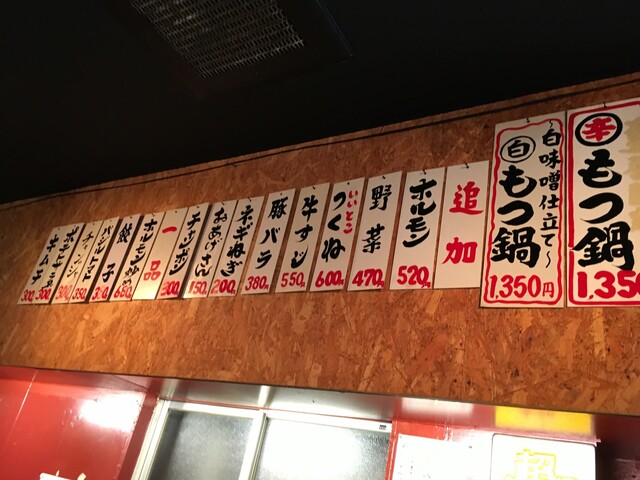 辛
もつ鍋
1,350
白
もつ鍋
〜白味噌仕立て〜
1,350円
追加
ホルモン
520
野菜
470
いいとこ
つくね
600
牛すじ
550
豚バラ
380
ネギねぎ
200
おあげさん
150
チャンポン
300
一品
ホルモン炒め
650
餃子
340
350
チャンジャ
300
300
キムチ
300